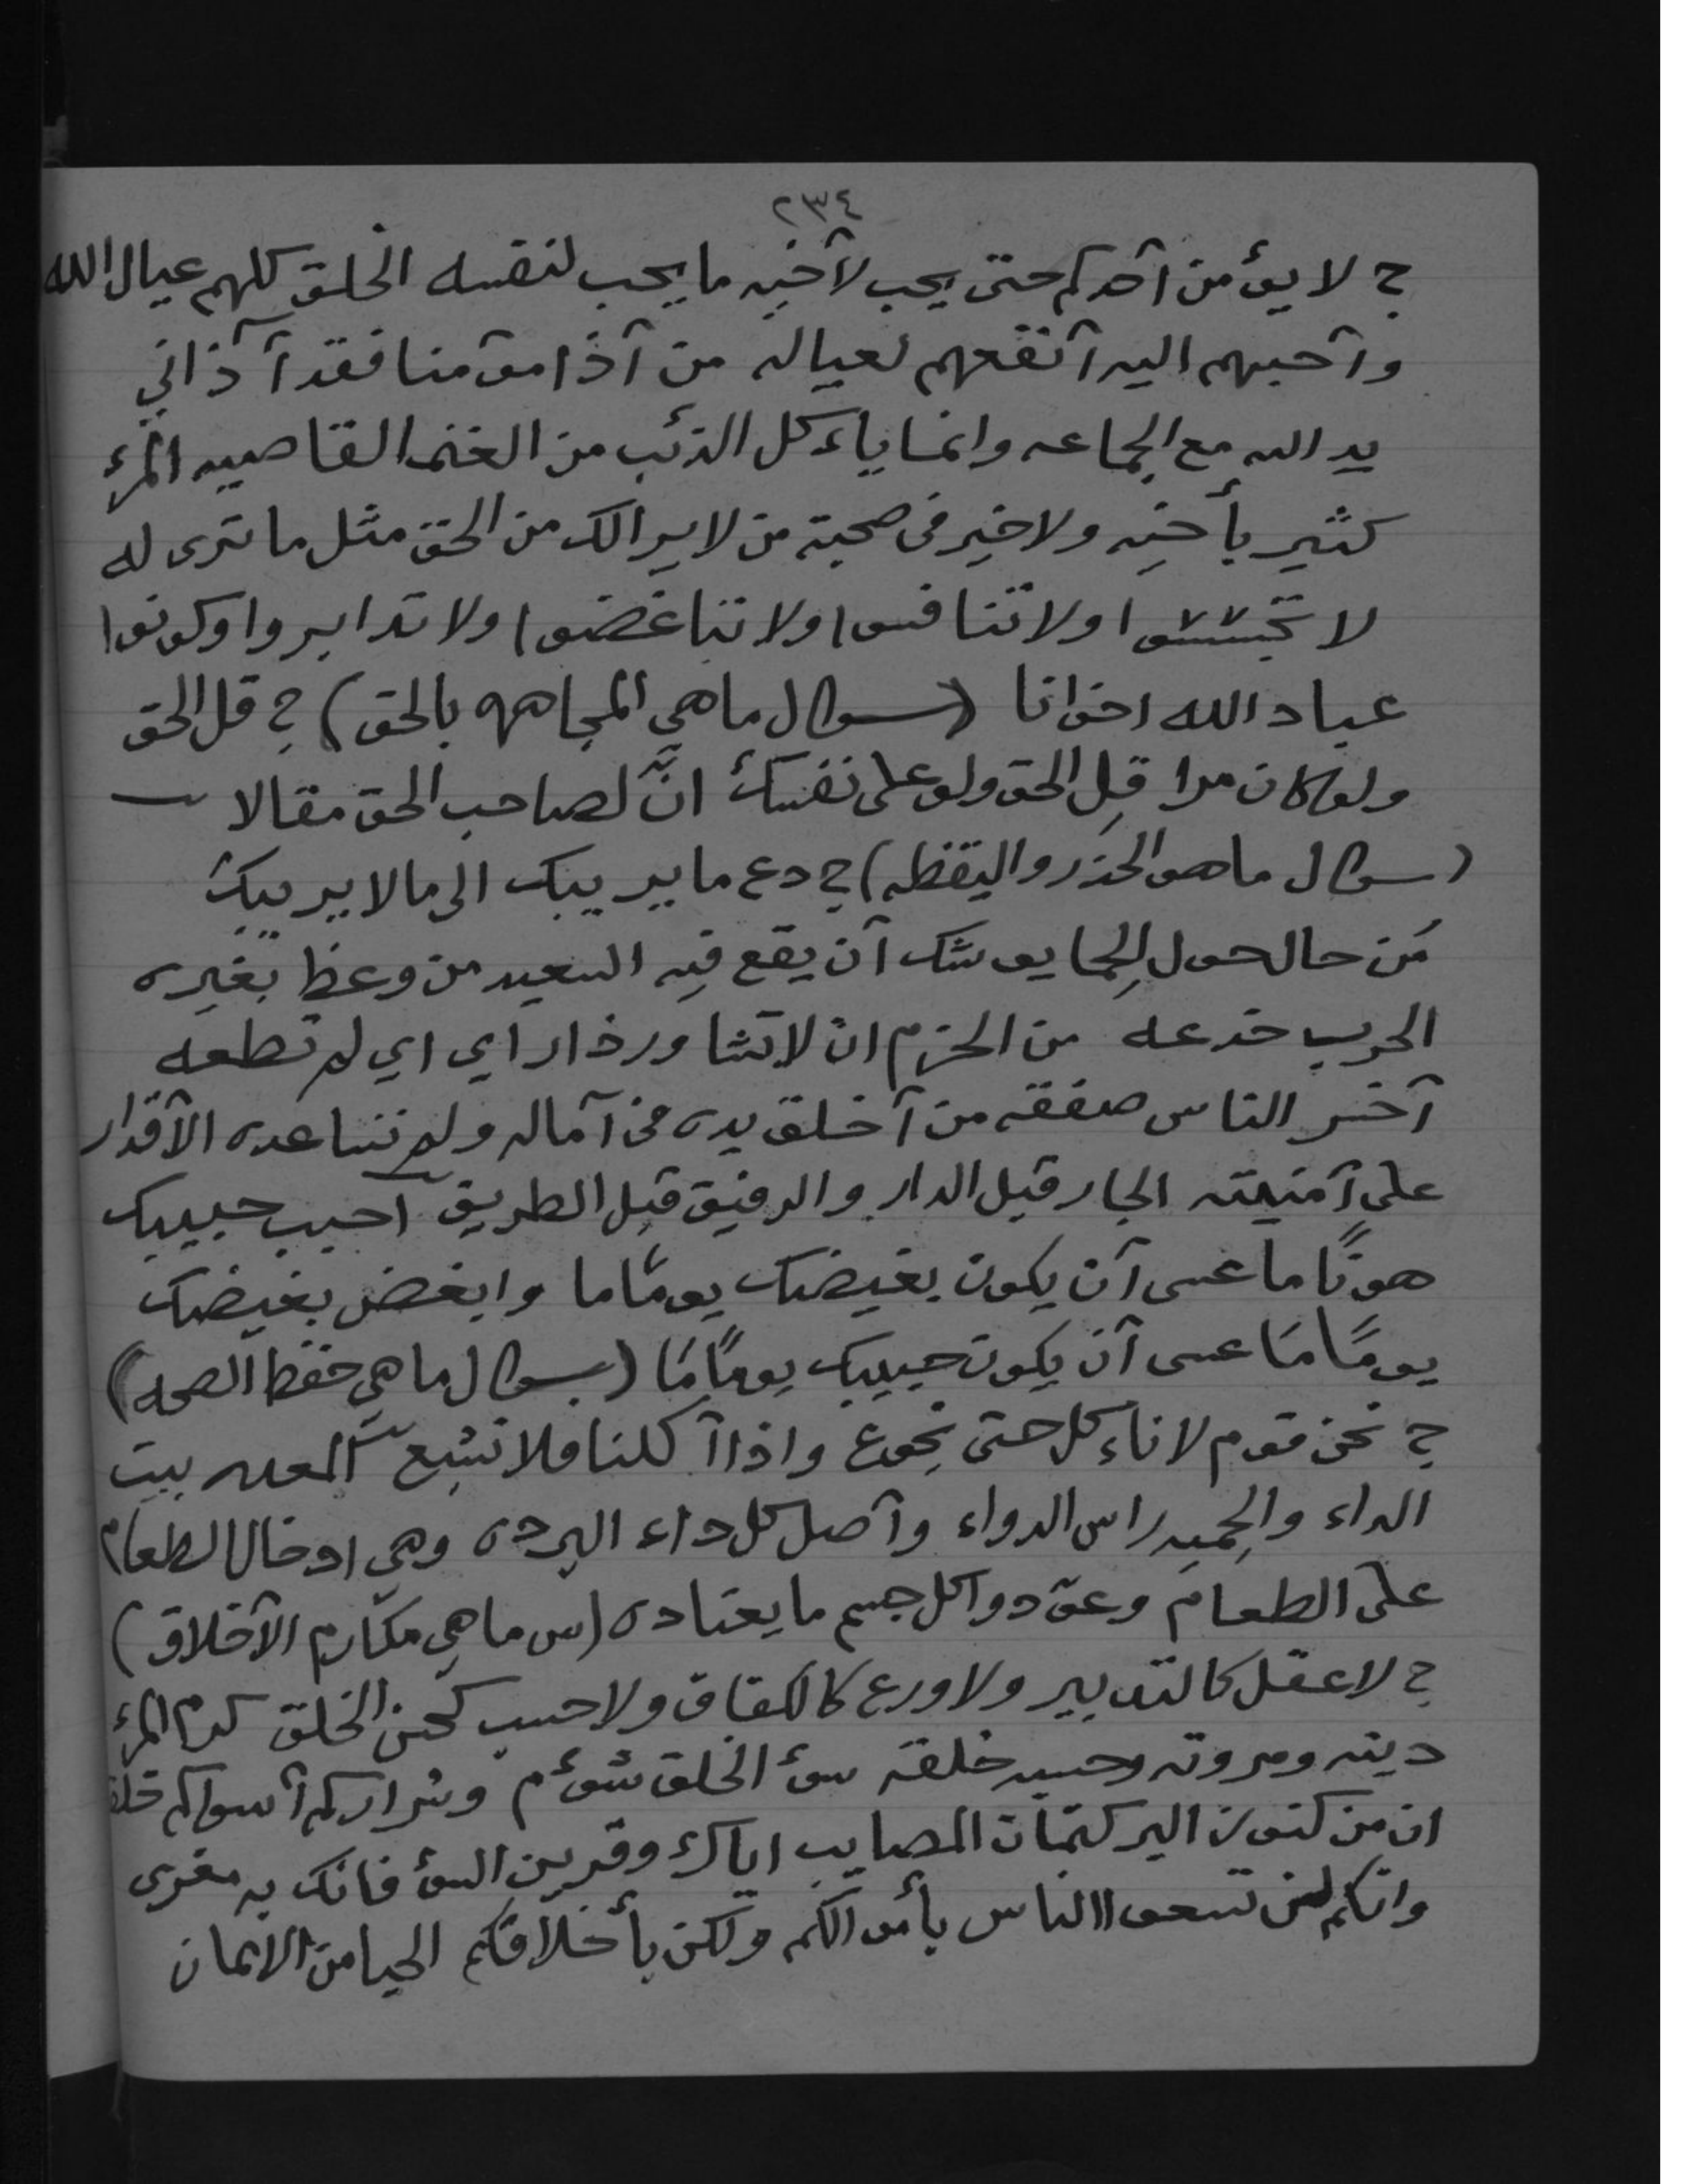 ٢٣٤
ج لا يؤمن آحدكم حتى يحب لآخيه ما يحب لنفسه الخلق كلهم عيال الله
وآحبهم اليه آنفعهم لعياله من آذا مؤمنا فقد آذاني
يد الله مع الجماعه وانما ياءكل الذئب من الغنم القاصيه المرء
كثير بأخيه ولا خير فى صحبة من لا يرالك من الحق مثل ما ترى له
لا تجسسوا ولا تنافسوا ولا تباغضوا ولا تدابروا وكونوا
عباد الله اخوانا (سوال ماهي المجاهه بالحق) ج قل الحق
ولو كان مرا قل الحق ولو على نفسك انّ لصاحب الحق مقالا
(سوال ماهو الحذر واليقظه) ج دع ما يريبك الى مالا يريبك
مَن حال حول الِحما يوشك آن يقع فيه السعيد من وعظ بغيره
الحرب خدعه من الحزم ان لا تشاور ذا راي اي لم تطعه
آخسر الناس صفقه من آخلق يده في آماله ولم تساعده الآقدار
على آمنيته الجار قبل الدار والرفيق قبل الطريق احبب حبيبك
هونًا ما عسى آن يكون بغيضك يومًا ما وابغض بغيضك
يومًا مَا عسى آن يكون حبيبك يومًا مَا (سوال ما هي حفظ الصحه)
ج نحن قوم لا ناءكل حتى نجوع واذا آكلنا فلا نشبع المعده بيت
الداء والحِميه راس الدواء وآصل كل داء البرده وهي ادخال الطعام
على الطعام وعودوا كل جسم ما يعتاده (س ما هي مكارم الآخلاق)
ج لا عقل كالتدبير ولا ورع كالكفاف ولا حسب كحسن الخلق كرم المرء
دينه ومروته وحسبه خلقه سؤ الخلق شؤم وشراركم آسواكم خلقا
ان من كنوز البر كتمان المصايب اياك وقرين السؤ فانك به معزى
وانكم لن تسعوا الناس بأموالكم ولكن بأخلاقكم الحيا من الايمان